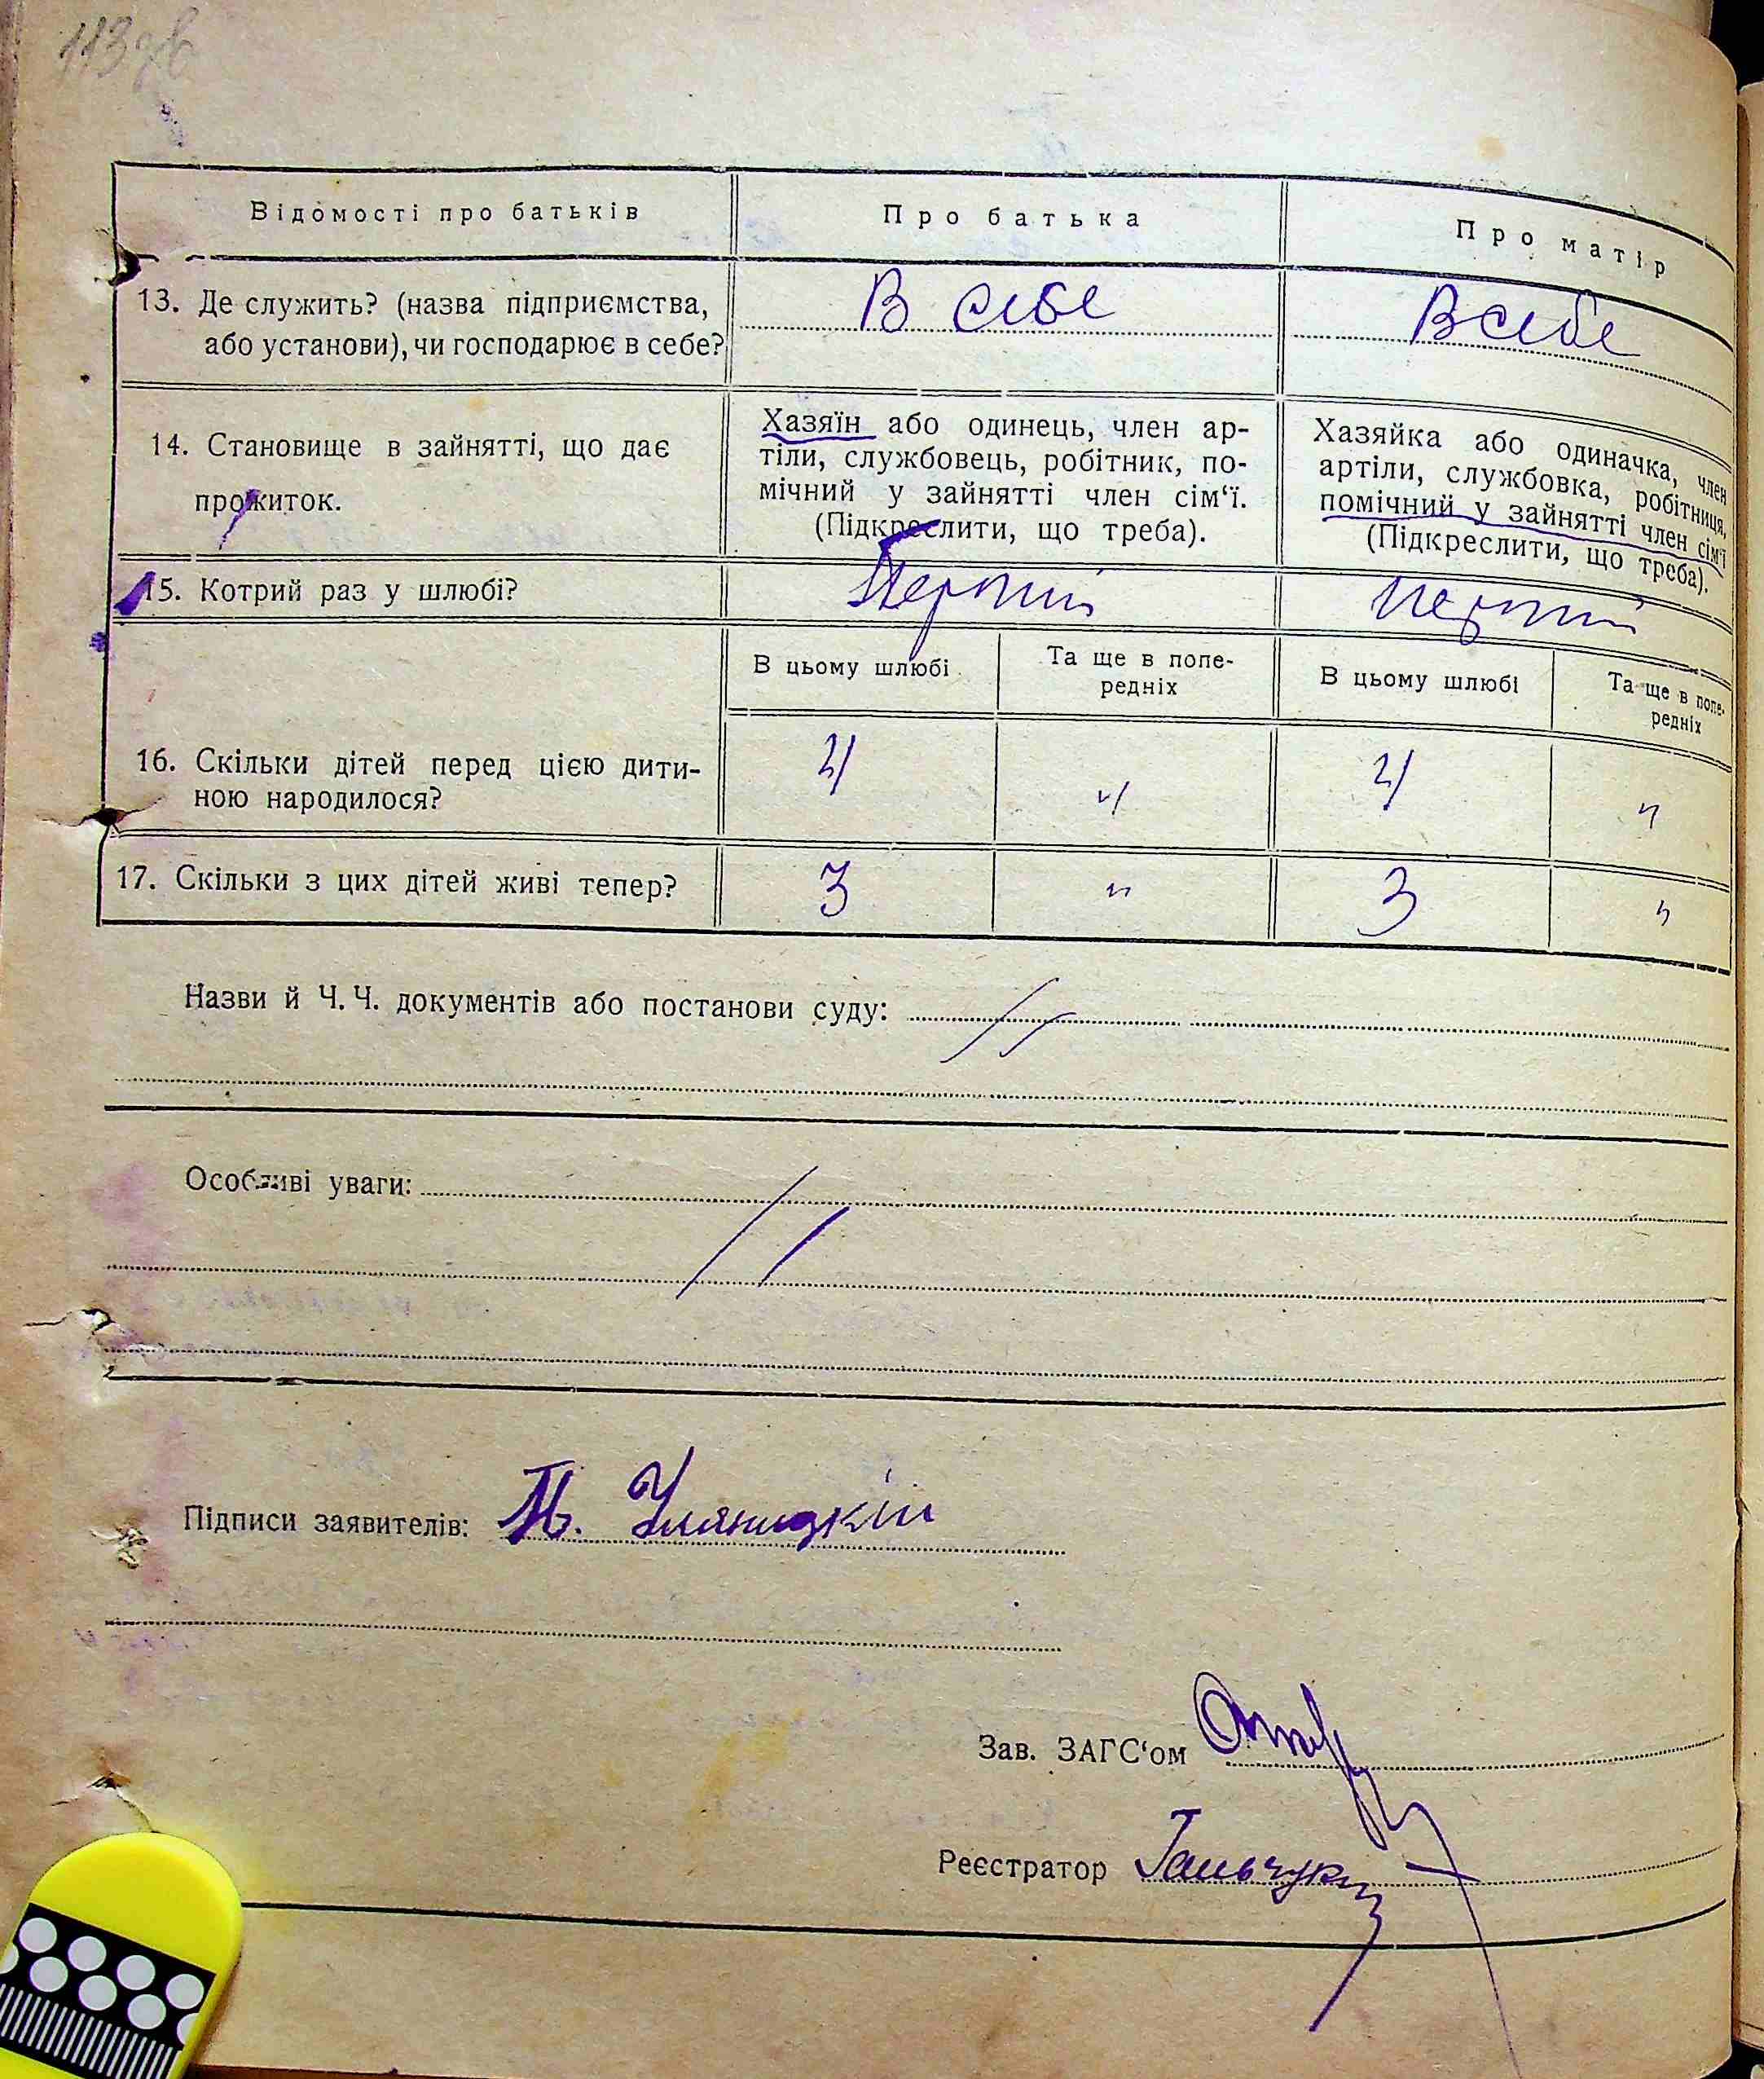 113 зв
Відомості про батьків
Про батька
Про матір
13. Де служить? (назва підприємства,
або установи), чи господарює в себе?
В себе
В себе
14. Становище в зайнятті, що дає
прожиток.
Хазяїн або одинець, член ар-
тіли, службовець, робітник, по-
мічний у зайнятті член сім‘ї.
(Підкреслити, що треба).
Хазяйка або одиначка, член
артіли, службовка, робітниця,
помічний у зайнятті член сім‘ї
(Підкреслити, що треба).
15. Котрий раз у шлюбі?
Перший
Перший
В цьому шлюбі
Та ще в попе-
редніх
В цьому шлюбі
Та ще в попе-
редніх
16. Скільки дітей перед цією дити-
ною народилося?
4
"
4
"
17. Скільки з цих дітей живі тепер?
3
"
3
"
Назви й Ч. Ч. документів або постанови суду:
Особливі уваги:
Підписи заявителів: М. Уляницкій
Зав. ЗАГС‘ом
Реєстратор